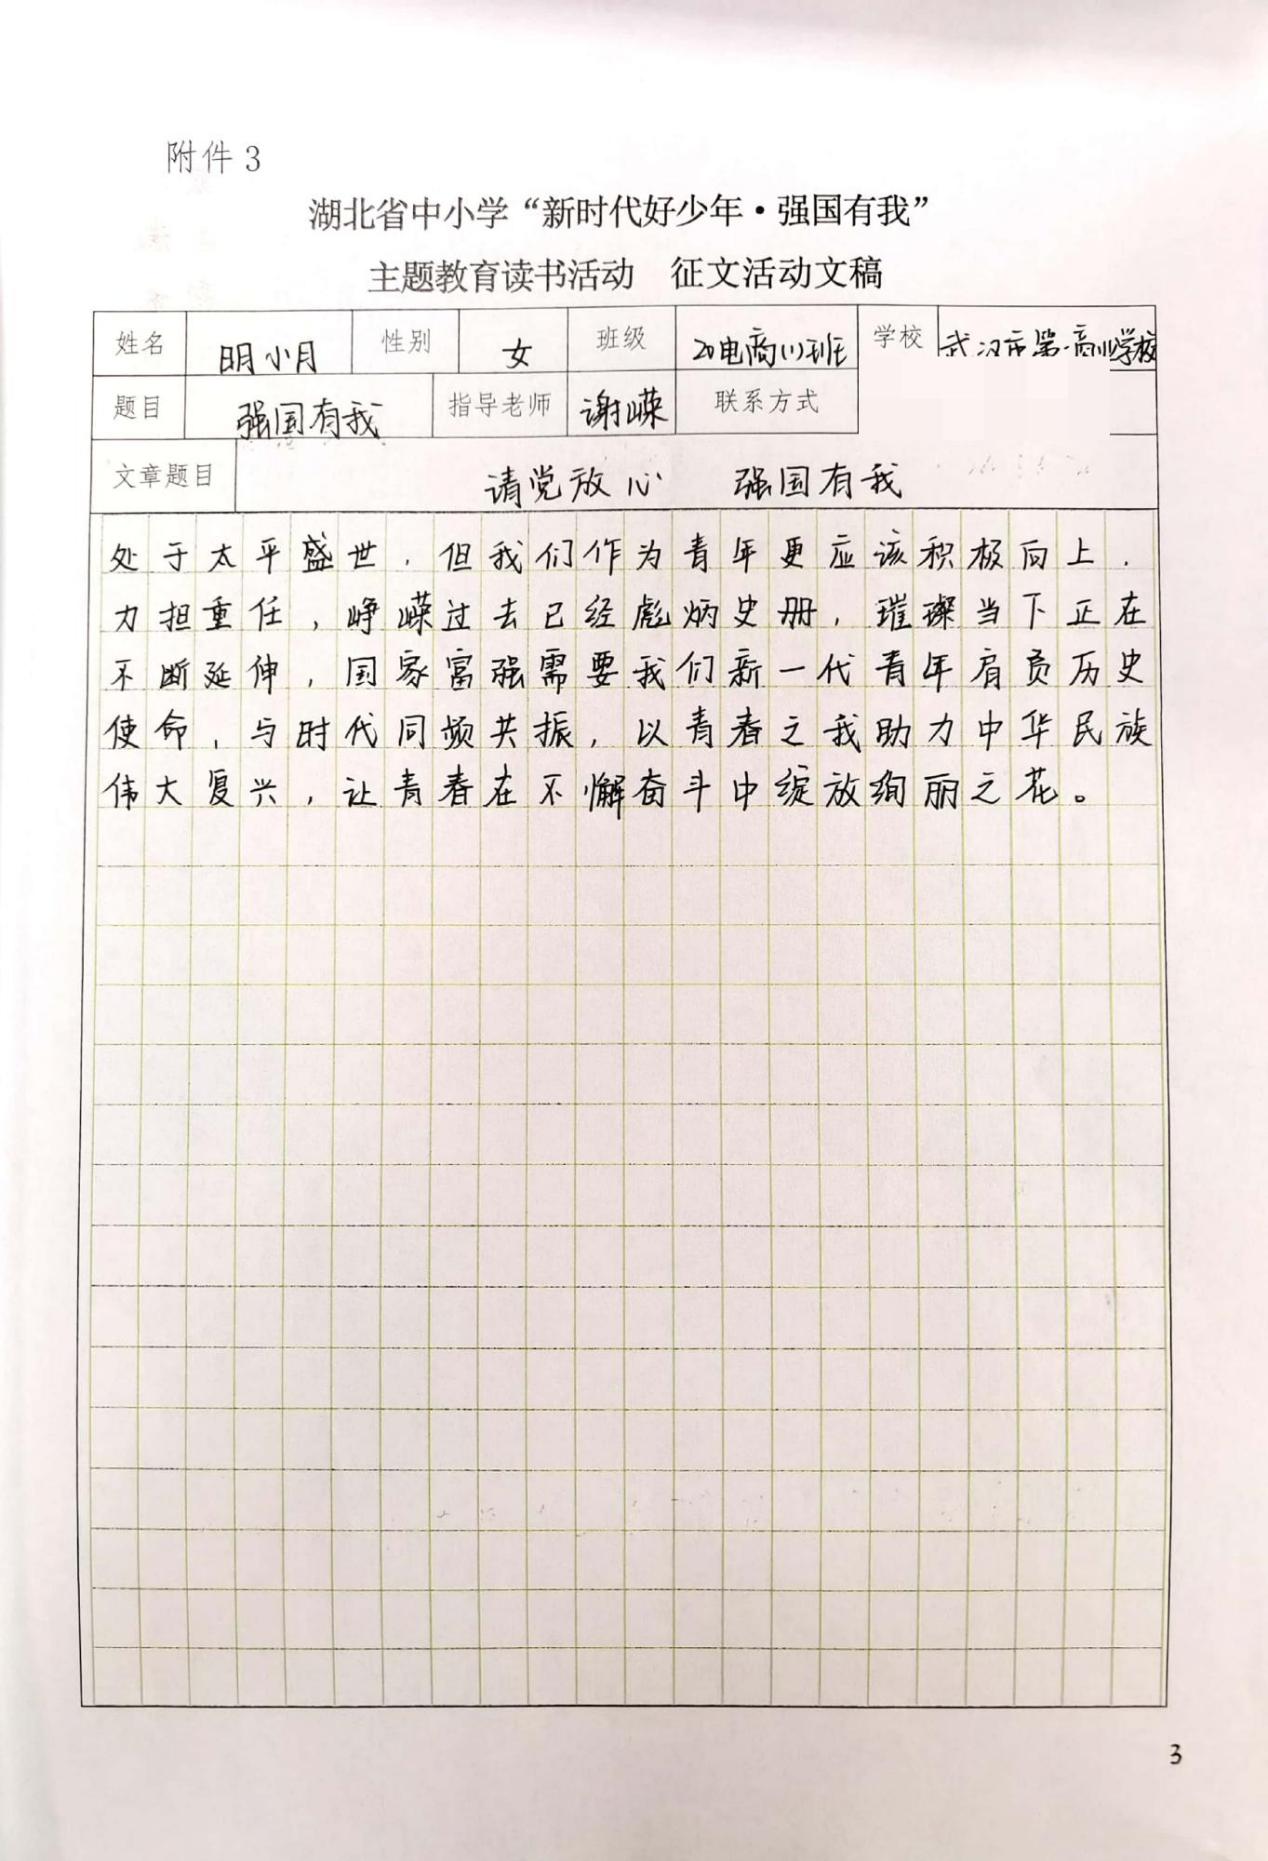 附件3
湖北省中小学“新时代好少年·强国有我”
主题教育读书活动 征文活动文稿
姓名 明小月 性别 女 班级 20电商(1)班 学校 武汉市第一商业学校
题目 强国有我 指导老师 谢嵘 联系方式
文章题目 请党放心 强国有我
处于太平盛世，但我们作为青年更应该积极向上，
力担重任，峥嵘过去已经彪炳史册，璀璨当下正在
不断延伸，国家富强需要我们新一代青年肩负历史
使命，与时代同频共振，以青春之我助力中华民族
伟大复兴，让青春在不懈奋斗中绽放绚丽之花。
3